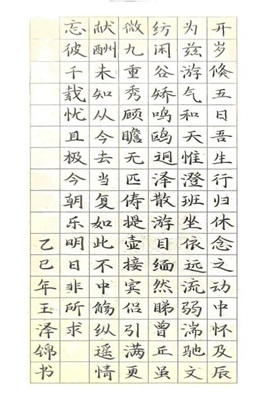 开岁倏五日吾生行归休念之动中怀及辰
为兹游气和天惟澄班坐依远流弱湍驰文
纺闲谷矫鸣鸥迥泽散游目缅然睇曾丘虽
微九重秀顾瞻无匹俦提壶接宾侣引满更
献酬未知从今去当复如此不中觞纵遥情
忘彼千载忧且极今朝乐明日非所求
乙巳年玉泽锦书